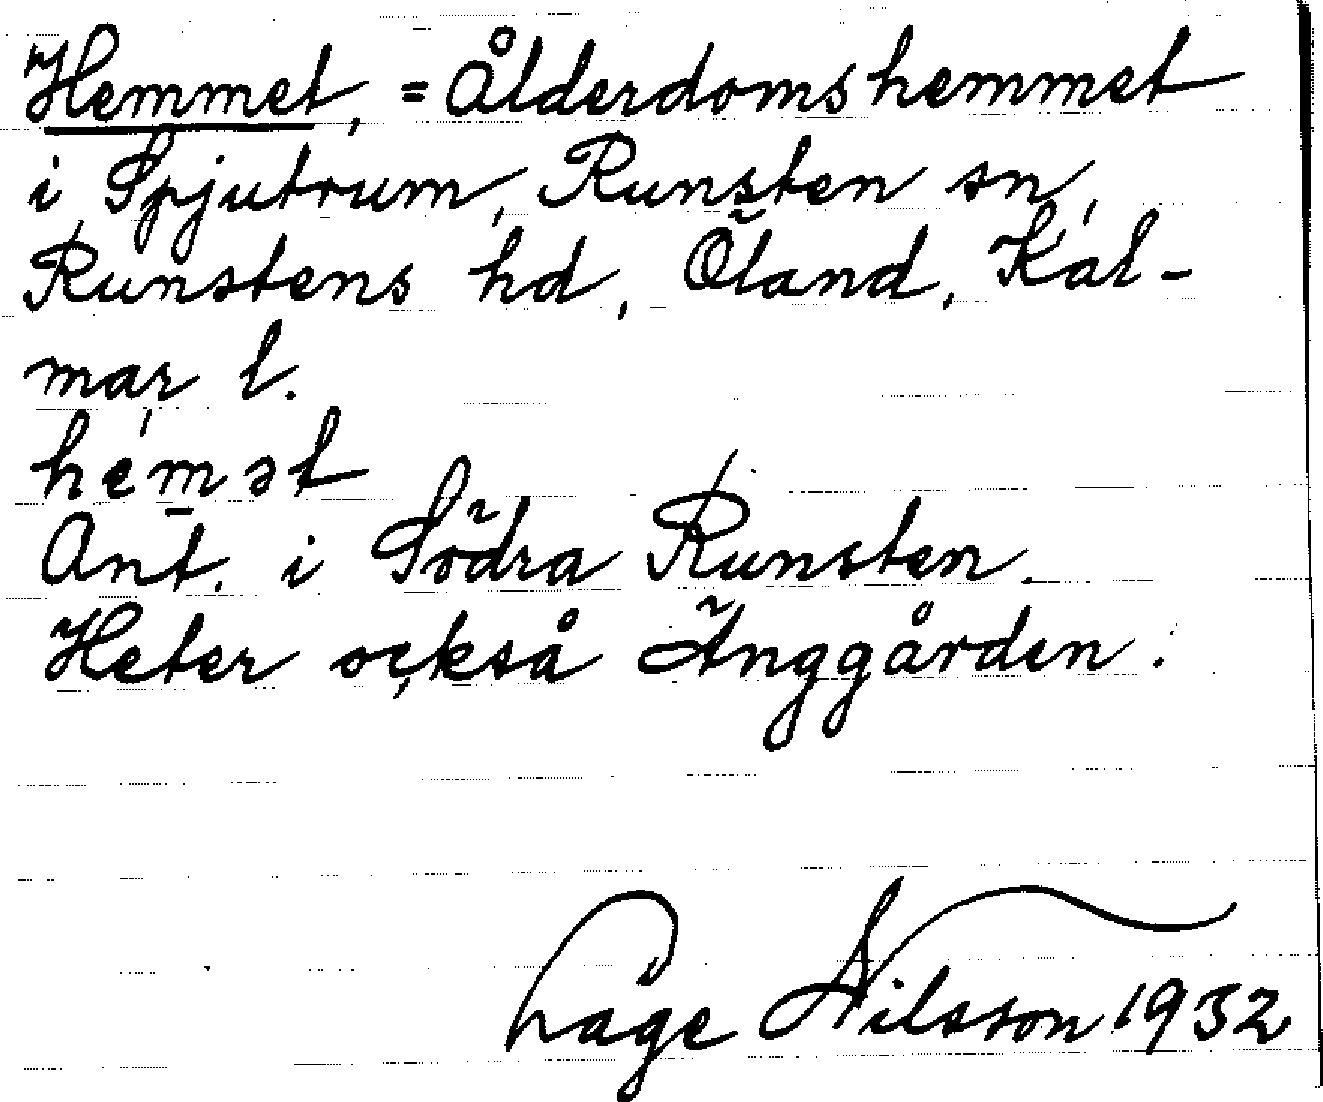 Hemmet, = Ålderdomshemmet
i Spjutrum, Runsten sn,
Runstens hd, Öland, Kal-
mar l.
hémət
Ant. i Södra Runsten.
Heter också Änggården.
Låge Nilsson 1932